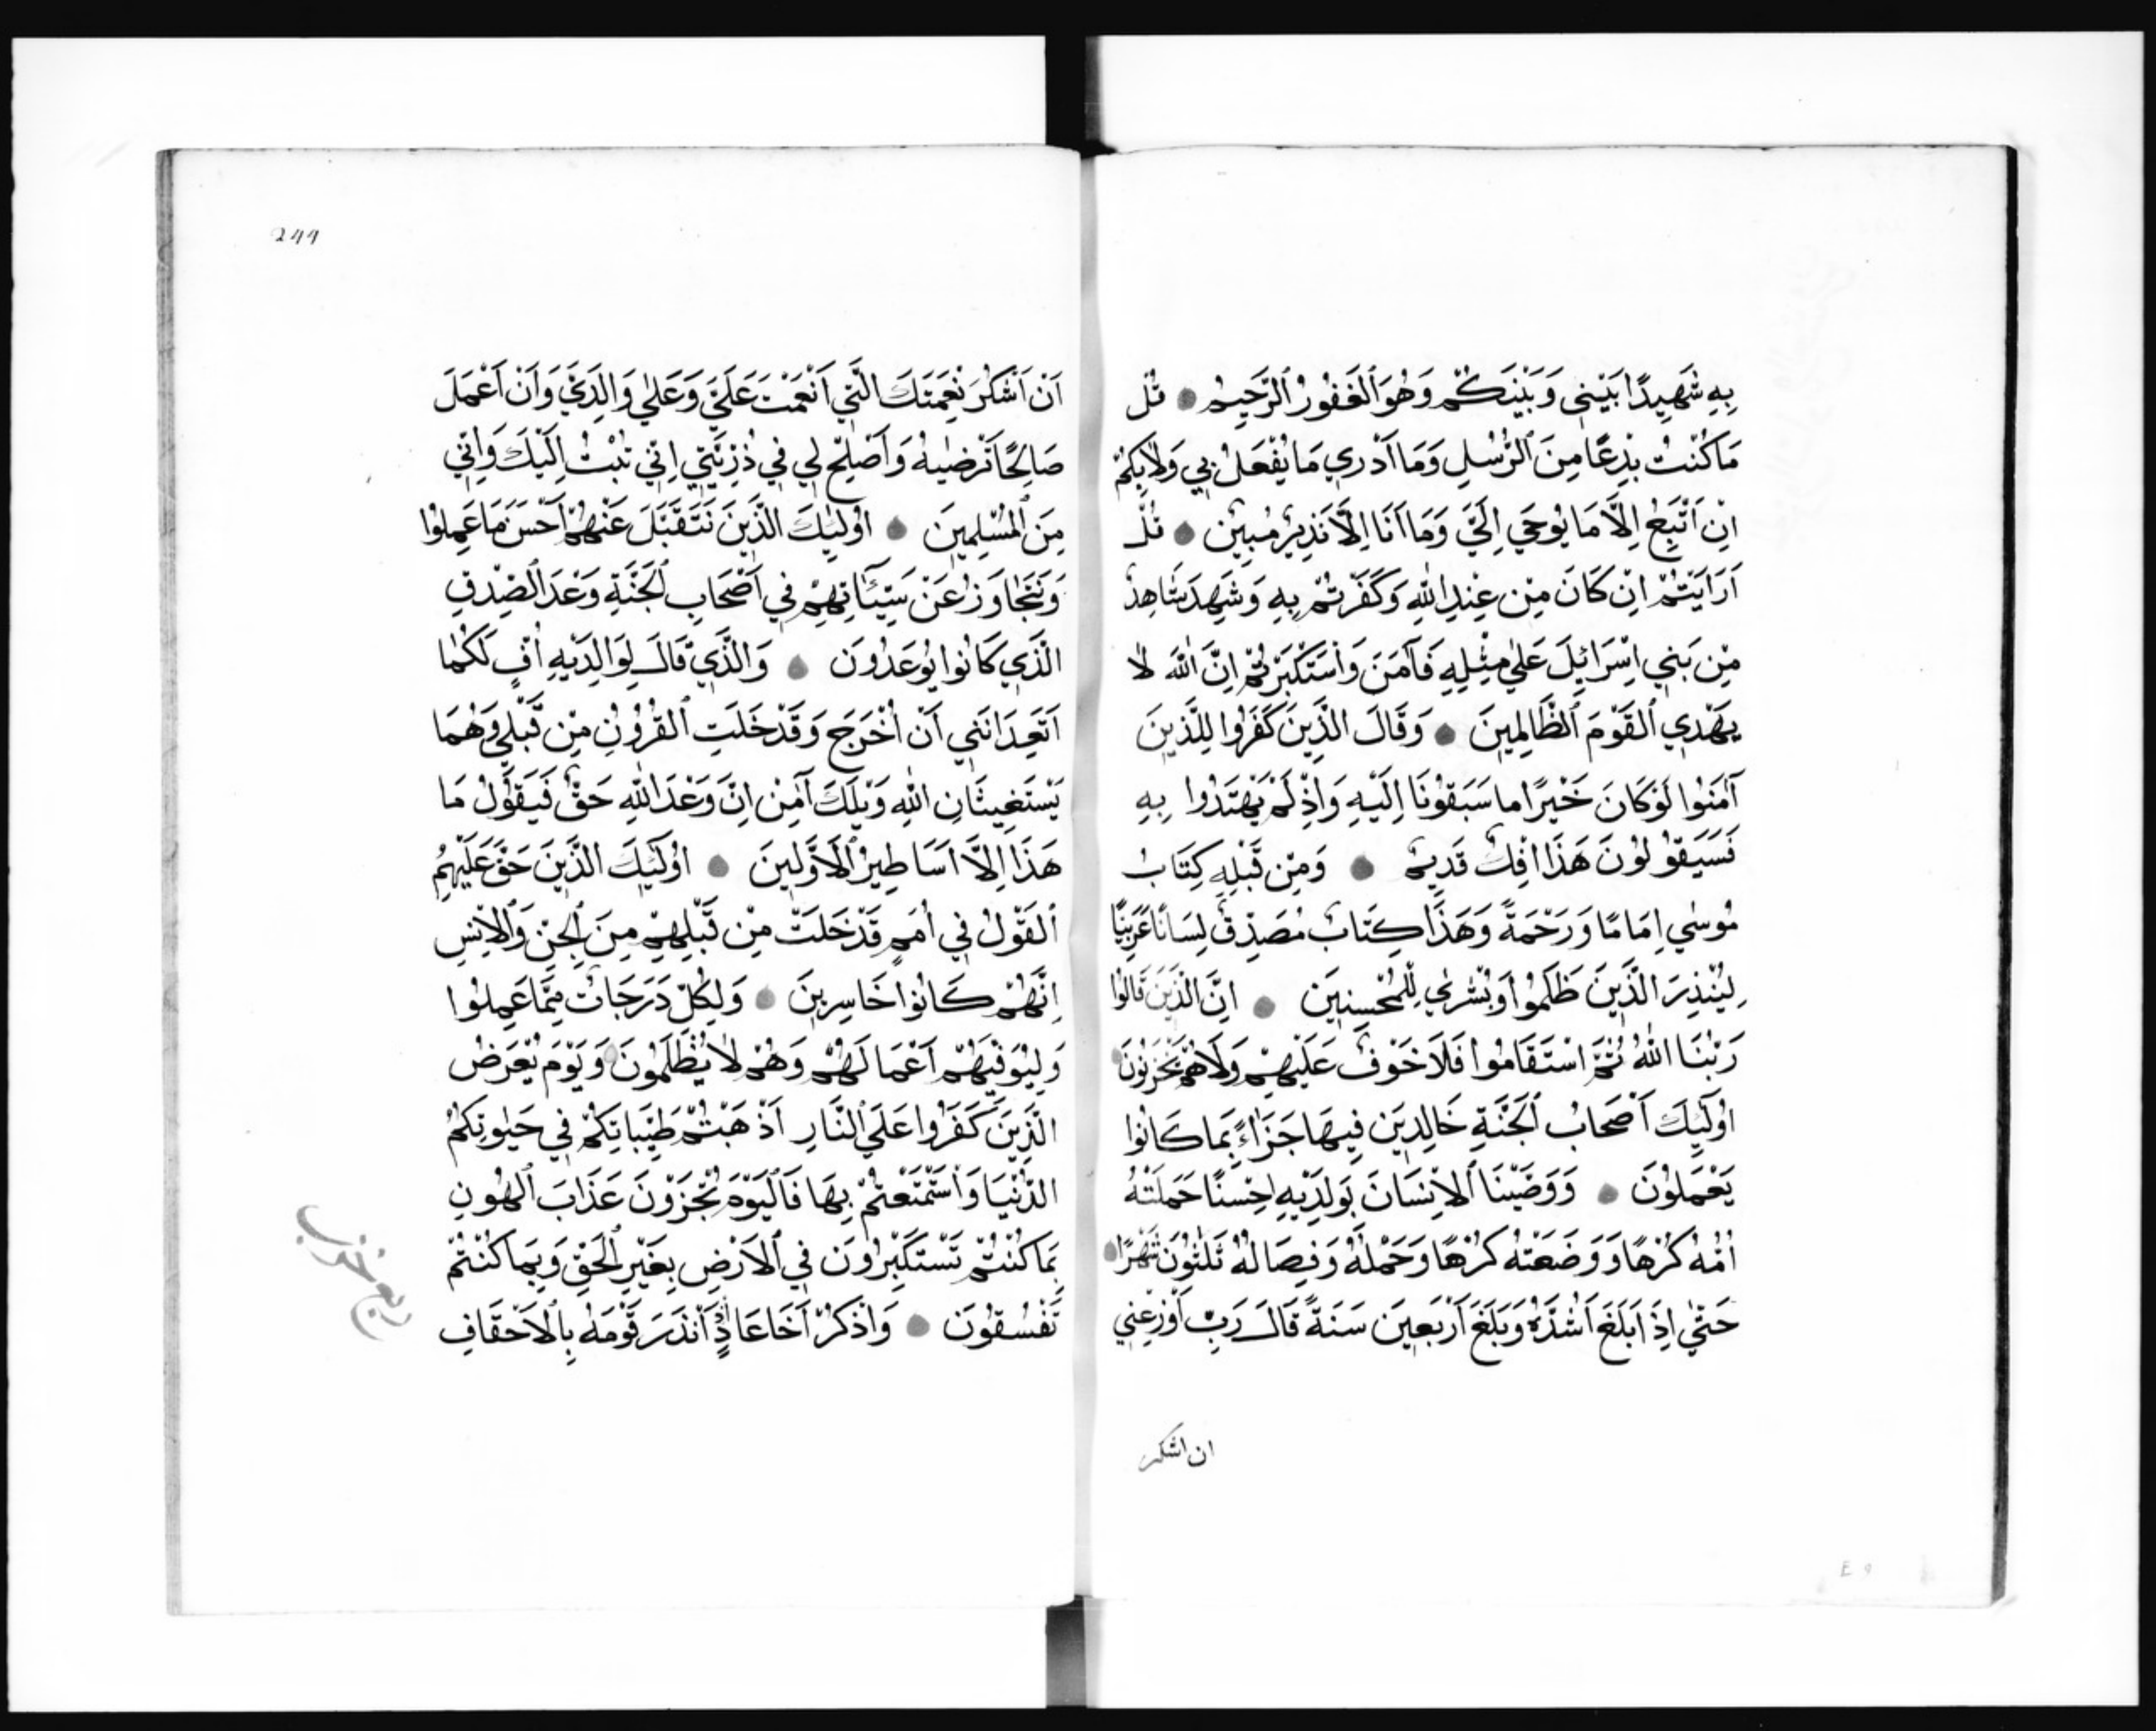 بِهِ شَهِيدًا بَيْنِي وَبَيْنَكُمْ وَهُوَ ٱلْغَفُورُ ٱلرَّحِيمُ قُلْ
مَا كُنْتُ بِدْعًا مِنَ ٱلرُّسُلِ وَمَا أَدْرِي مَا يُفْعَلُ بِي وَلَا بِكُمْ
اِنْ اَتَّبِعُ اِلَّا مَا يُوحَي اِلَيَّ وَمَا اَنَا اِلَّا نَذِيرٌ مُبِينٌ قُلْ
اَرَاَيْتُمْ اِنْ كَانَ مِنْ عِنْدِ اللّٰهِ وَكَفَرْتُمْ بِهِ وَشَهِدَ شَاهِدٌ
مِنْ بَنِي اِسْرَائِلَ عَلٰي مِثْلِهِ فَآمَنَ وَاسْتَكْبَرْتُمْ اِنَّ اللّٰهَ لَا
يَهْدِي ٱلْقَوْمَ ٱلظَّالِمِينَ وَقَالَ الَّذِينَ كَفَرُوا لِلَّذِينَ
آمَنُوا لَوْ كَانَ خَيْرًا ما سَبَقُونَا اِلَيْهِ وَاِذْ لَمْ يَهْتَدُوا بِهِ
فَسَيَقُولُونَ هَذَا اِفْكٌ قَدِيمٌ وَمِنْ قَبْلِهِ كِتَابُ
مُوسٰي اِمَامًا وَرَحْمَةً وَهَذَا كِتَابٌ مُصَدِّقٌ لِسَانًا عَرَبِيًّا
لِيُنْذِرَ الَّذِينَ ظَلَمُوا وَبُشْرٰي لِلْمُحْسِنِينَ اِنَّ الَّذِينَ قَالُوا
رَبُّنَا اللّٰهُ ثُمَّ اسْتَقَامُوا فَلَا خَوْفٌ عَلَيْهِمْ وَلَا هُمْ يَحْزَنُونَ
اُولَٓئِكَ اَصْحَابُ ٱلْجَنَّةِ خَالِدِينَ فِيهَا جَزَاءً بِمَا كَانُوا
يَعْمَلُونَ وَوَصَّيْنَا ٱلْاِنْسَانَ بِوَلِدَيْهِ اِحْسنًا حَمَلَتْهُ
اُمُّهُ كُرْهًا وَوَضَعَتْهُ كُرْهًا وَحَمْلُهُ وَفِصَالُهُ ثَلٰثُونَ شَهْرًا
حَتّٰي اِذَا بَلَغَ اَشُدَّهُ وَبَلَغَ اَرْبَعِينَ سَنَةً قَالَ رَبِّ اَوْزِعْنِي
ان اشكر
244
اَنْ اَشْكُرَ نِعْمَتَكَ الَّتِي اَنْعَمْتَ عَلَيَّ وَعَلٰي وَالِدَيَّ وَاَنْ اَعْمَلَ
صَالِحًا تَرْضٰيهُ وَاَصْلِحْ لِي فِي ذُرِّيَّتِي اِنِّي تُبْتُ اِلَيْكَ وَاِنِّي
مِنَ ٱلْمُسْلِمِينَ اُولَٓئِكَ الَّذِينَ نَتَقَبَّلُ عَنْهُمْ اَحْسَنَ مَا عَمِلُوا
وَنَتَجَاوَزُ عَنْ سَيِّئَاتِهِمْ فِي اَصْحَابِ ٱلْجَنَّةِ وَعْدَ ٱلصِّدْقِ
الَّذِي كَانُوا يُوعَدُونَ وَالَّذِي قَالَ لِوَالِدَيْهِ اُفٍّ لَكُمَا
اَتَعِدَانَنِي اَنْ اُخْرَجَ وَقَدْ خَلَتِ ٱلْقُرُونُ مِنْ قَبْلِي وَهُمَا
يَسْتَغِيثَانِ اللّٰهِ وَيْلَكَ آمِنْ اِنَّ وَعْدَ اللّٰهِ حَقٌّ فَيَقُولُ مَا
هَذَا اِلَّا اَسَاطِيرُ ٱلْاَوَّلِينَ اُولَٓئِكَ الَّذِينَ حَقَّ عَلَيْهِمُ
ٱلْقَوْلُ فِي اُمَمٍ قَدْ خَلَتْ مِنْ قَبْلِهِمْ مِنَ ٱلْجِنِّ وَٱلْاِنْسِ
اِنَّهُمْ كَانُوا خَاسِرِينَ وَلِكُلٍّ دَرَجَاتٌ مِمَّا عَمِلُوا
وَلِيُوَفِّيَهُمْ اَعْمَالَهُمْ وَهُمْ لَا يُظْلَمُونَ وَيَوْمَ يُعْرَضُ
الَّذِينَ كَفَرُوا عَلَي ٱلنَّارِ اَذْهَبْتُمْ طَيِّبَاتِكُمْ فِي حَيٰوتِكُمُ
الدُّنْيَا وَاسْتَمْتَعْتُمْ بِهَا فَالْيَوْمَ تُجْزَوْنَ عَذَابَ ٱلْهُونِ
بِمَا كُنْتُمْ تَسْتَكْبِرُونَ فِي ٱلْاَرْضِ بِغَيْرِ ٱلْحَقِّ وَبِمَا كُنْتُمْ
تَفْسُقُونَ وَاذْكُرْ اَخَا عَادٍ اِذْ اَنْذَرَ قَوْمَهُ بِٱلْاَحْقَافِ